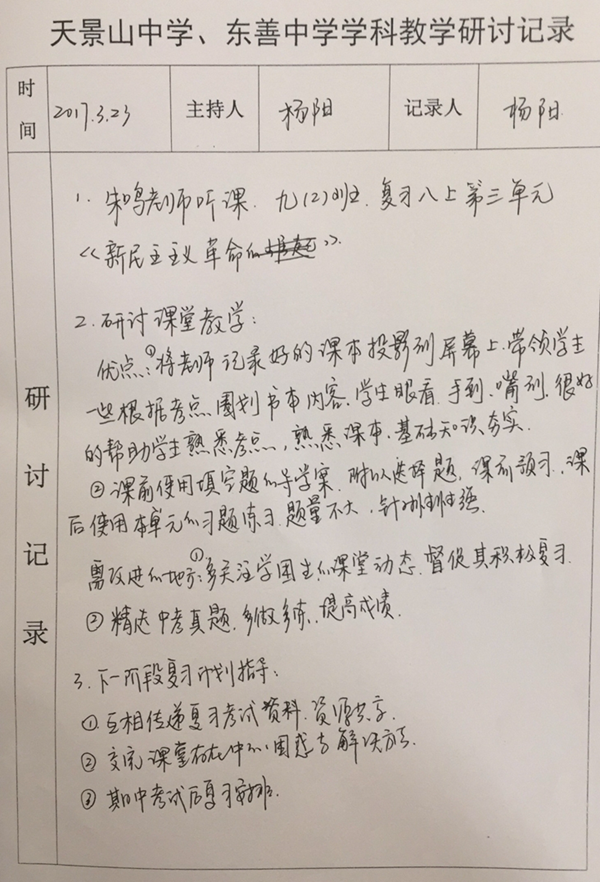 天景山中学、东善中学学科教学研讨记录
时间 2017.3.23 主持人 杨阳 记录人 杨阳
研讨记录
1. 朱鸣老师听课. 九(2)班. 复习八上第三单元
《新民主主义革命的》.
2. 研讨课堂教学:
优点:①将老师记录好的课本投影到屏幕上.带领学生
一些根据考点圈划书本内容.学生眼看.手到.嘴到.很好
的帮助学生熟悉考点,熟悉课本.基础知识夯实.
②课前使用填空题的导学案.附以选择题.课前预习.课
后使用本单元的习题练习.题量不大,针对性强.
需改进的地方:①多关注学困生的课堂动态.督促其积极复习.
②精选中考真题.多做多练.提高成绩.
3. 下一阶段复习计划指导:
①互相传递复习考试资料.资源共享.
②交流课堂存在中的困惑与解决方案.
③期中考试后复习安排.